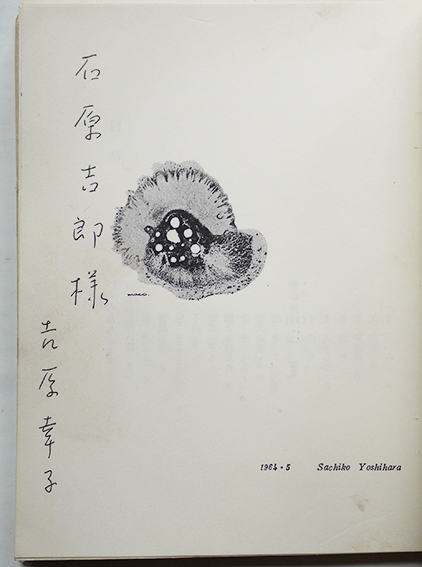 石原吉郎様
吉原幸子
maco.
1964・5 Sachiko Yoshihara